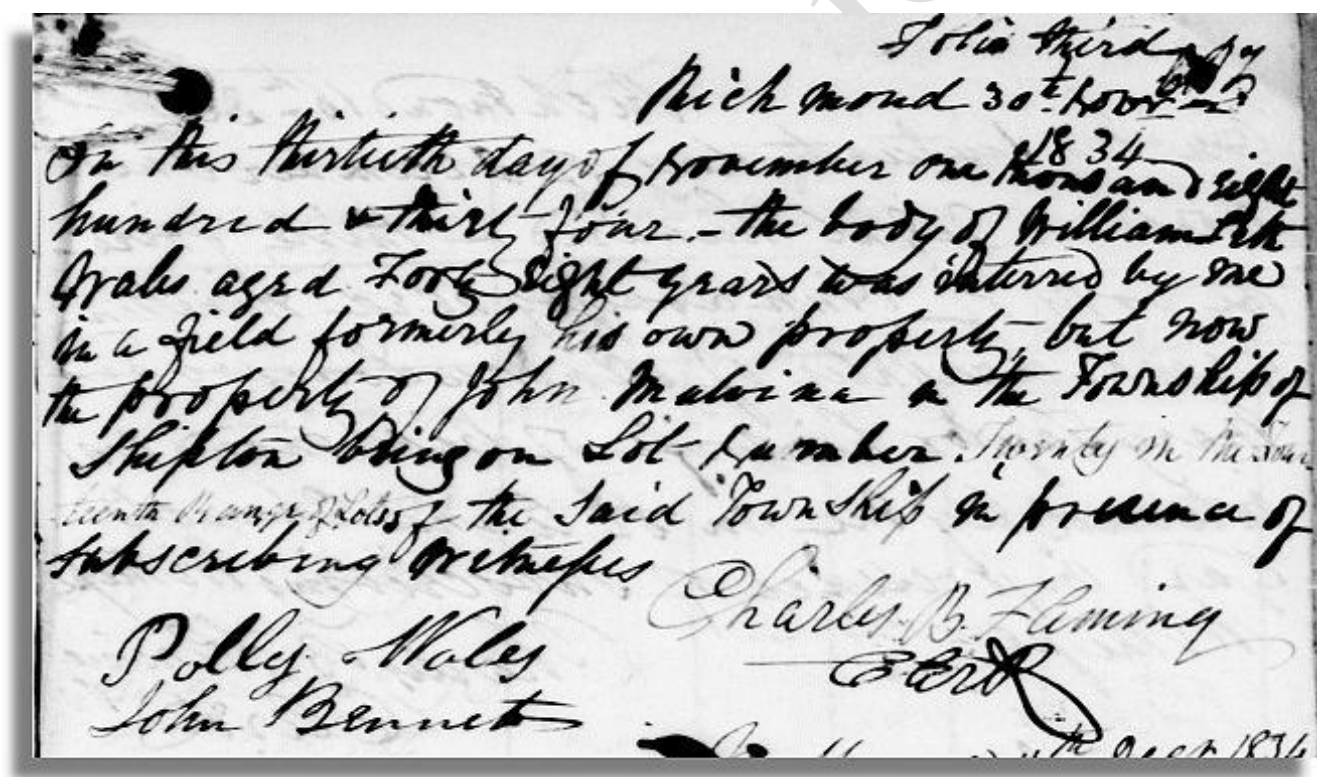 Folio third
Richmond 30th Novr
1834
On this thirtieth day of November one thousand eight
hundred & thirty four. - the body of William
Wales aged Forty Eight years was interred by me
in a field formerly his own property, but now
the property of John Malvina in the Township of
Shipton being on Lot Number Twenty in the Four
teenth Range of Lots of the said Township in presence of
subscribing Witnesses
Charles. B. Fleming
Polly Wales
John Bennett
th Decr 1834